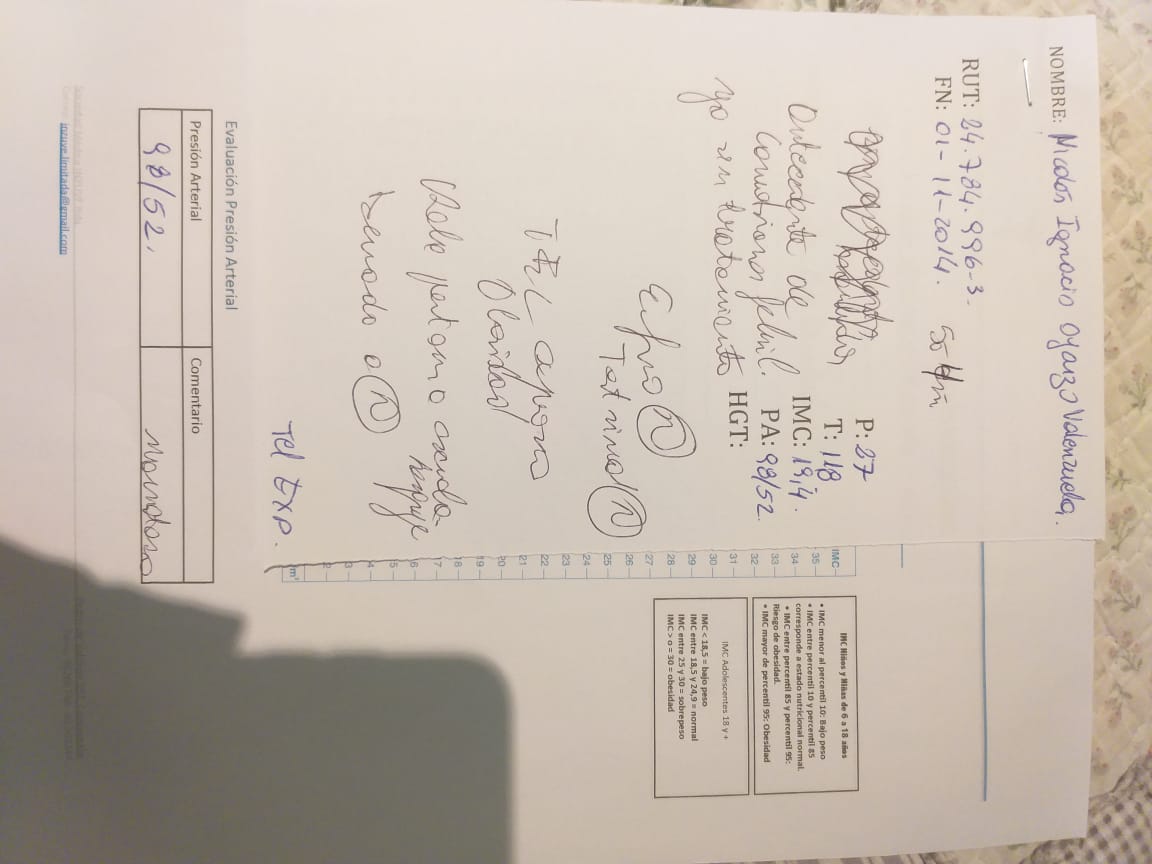 NOMBRE: Nicolás Ignacio Oyarzo Valenzuela.
RUT: 24.784.996-3.
FN: 01-11-2014.
P: 27
T: 118
Antecedente de
IMC: 19,4.
febril.
PA: 98/52.
ya sin tratamiento
HGT:
N
Test visual N
TEL
Obesidad
escuela
a N
Tel EXP.
IMC
35
34
33
32
31
30
29
28
27
26
25
24
23
22
21
20
19
18
7
6
5
4
3
2
m²
IMC Niños y Niñas de 6 a 18 años
• IMC menor al percentil 10: Bajo peso
• IMC entre percentil 10 y percentil 85
corresponde a estado nutricional normal.
• IMC entre percentil 85 y percentil 95:
Riesgo de obesidad.
• IMC mayor de percentil 95: Obesidad
IMC Adolescentes 18 y +
IMC < 18,5 = bajo peso
IMC entre 18,5 y 24,9 = normal
IMC entre 25 y 30 = sobrepeso
IMC > o = 30 = obesidad
Evaluación Presión Arterial
Presión Arterial
Comentario
98/52.
Sociedad Médica INZUVE ltda
inzuve.limitada@gmail.com